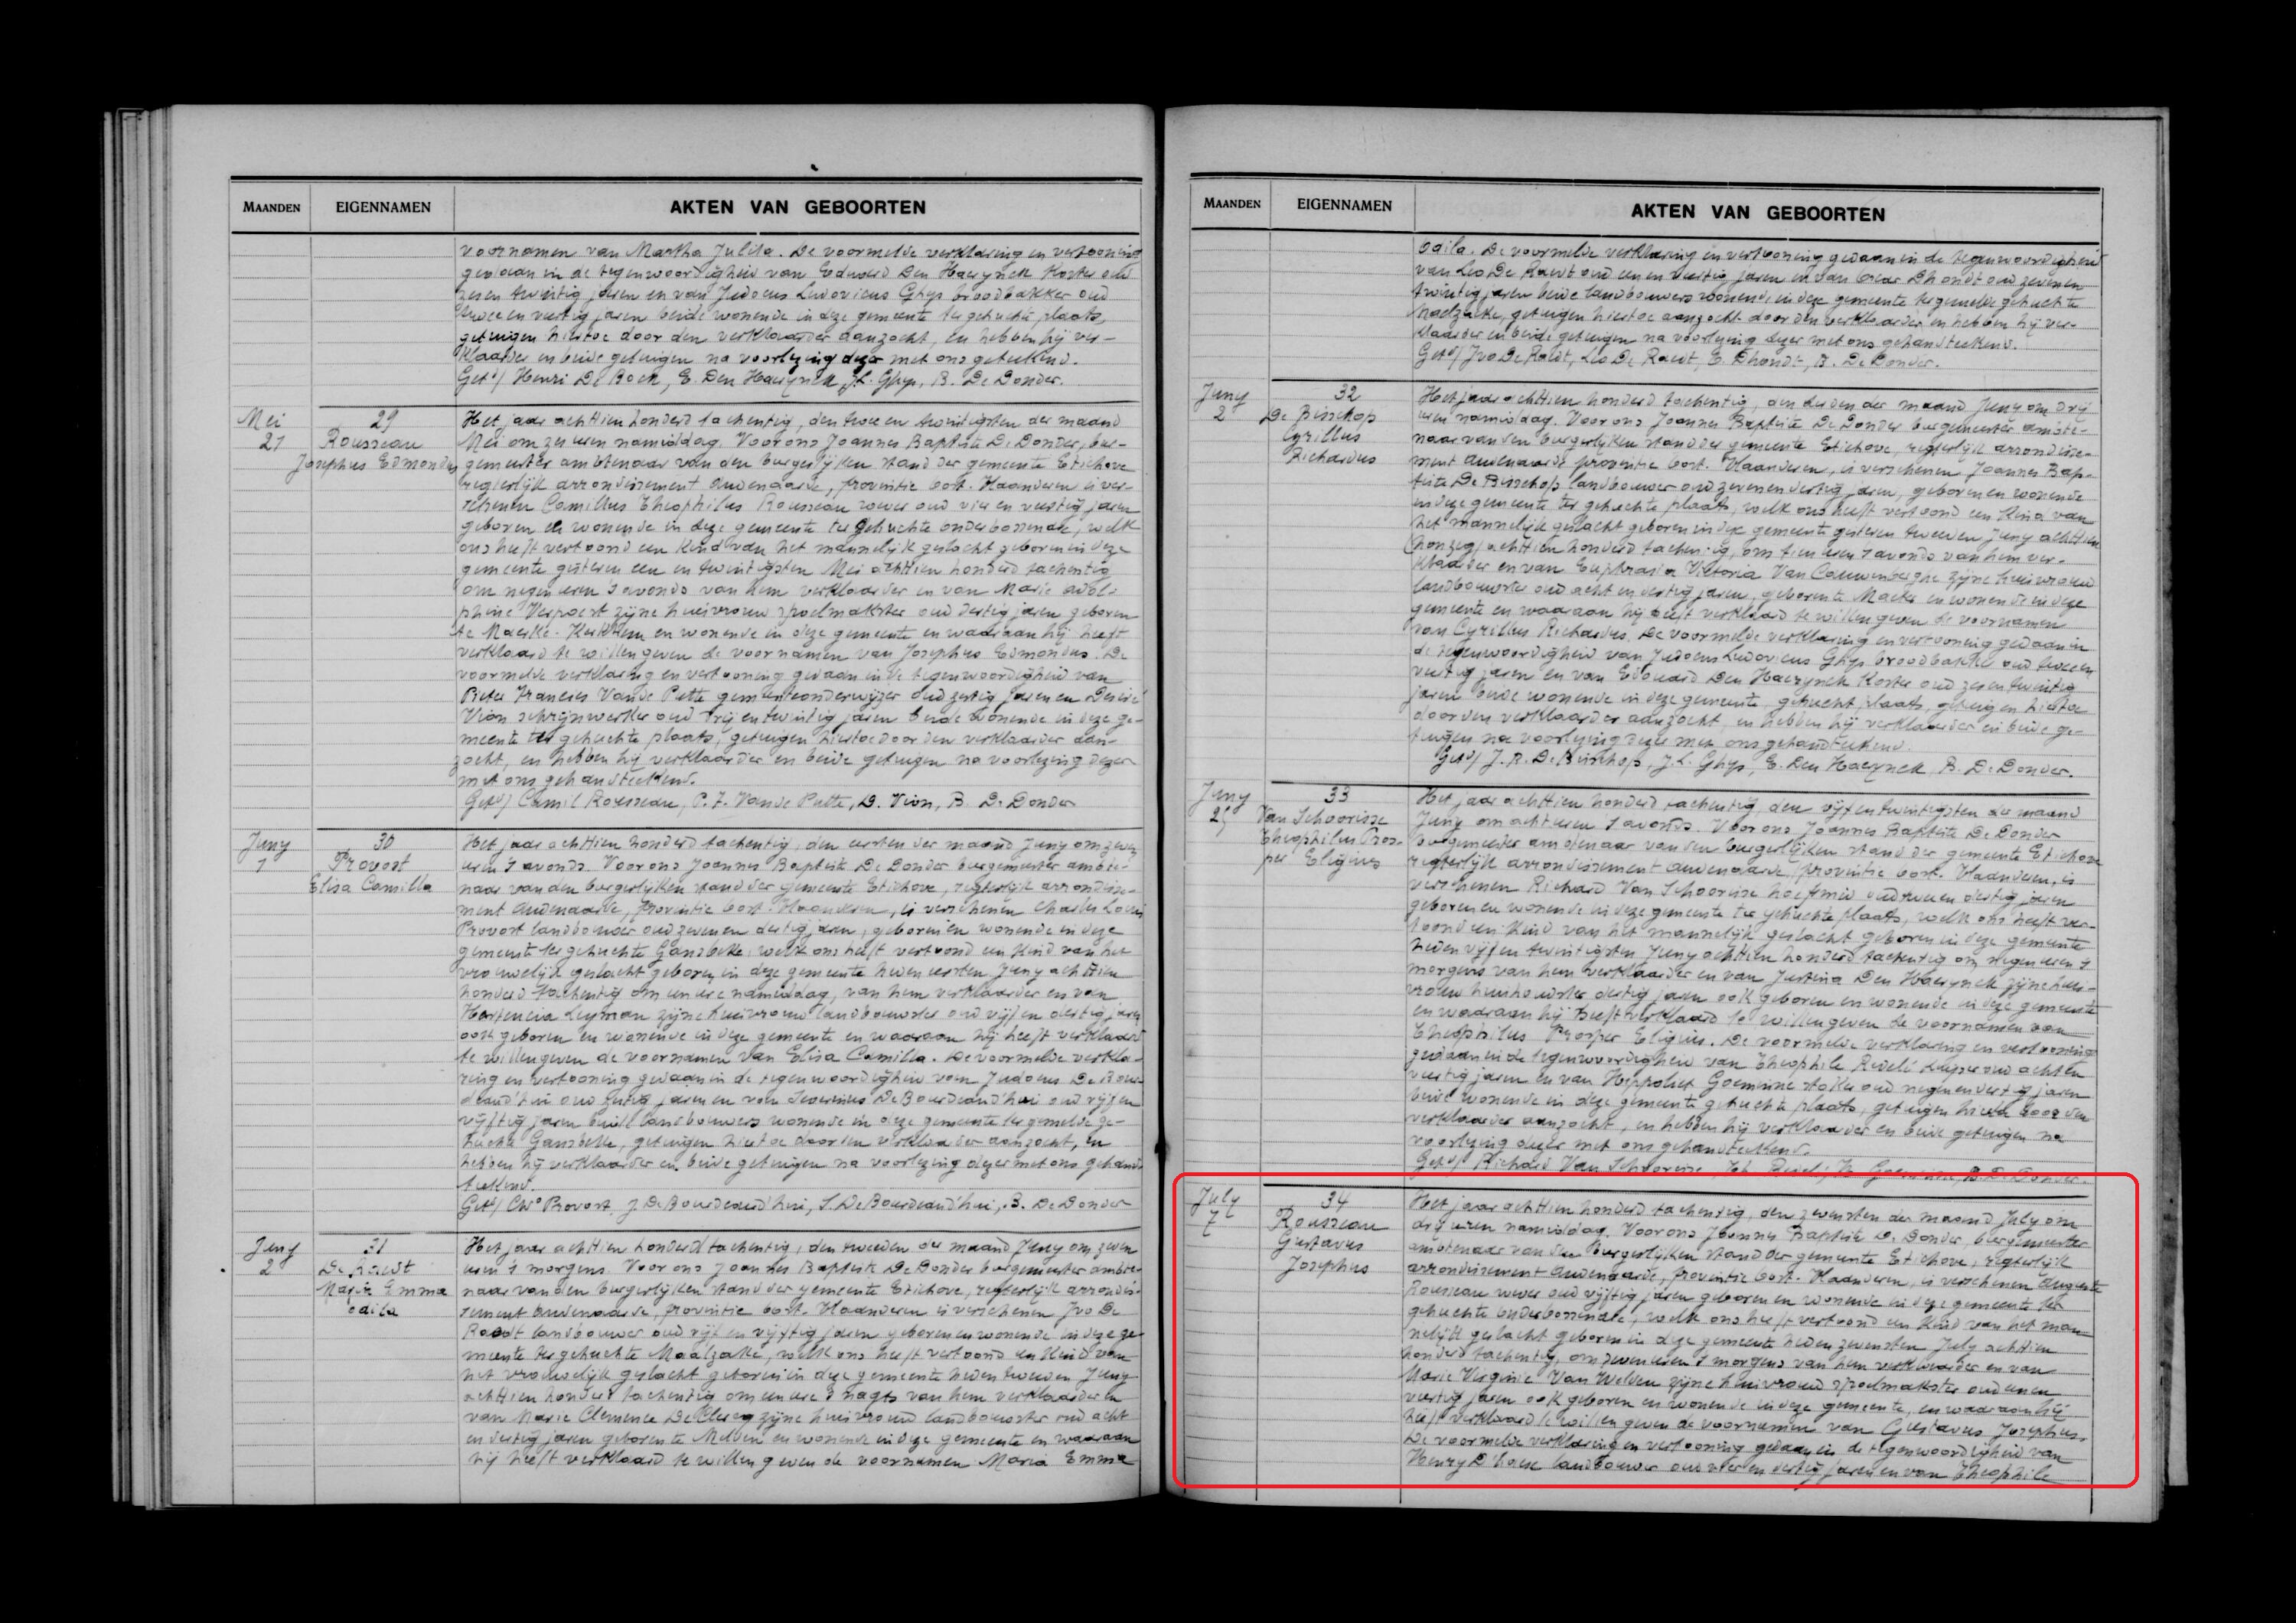 MAANDEN EIGENNAMEN AKTEN VAN GEBOORTEN
voornamen van Martha Julita. De voormelde verklaring en vertooning
gedaan in de tegenwoordigheid van Eduard Den Haerynck Koster oud
zes en twintig jaren en van Judocus Ludovicus Ghys broodbakker oud
twee en veertig jaren beide wonende in deze gemeente ter gehuchte plaats,
getuigen hiertoe door den verklaarder aanzocht, en hebben hij ver-
klaarder en beide getuigen na voorlezing dezer met ons geteekend.
Getd/ Henri De Bock, E. Den Haerynck, J.L. Ghys, B. De Donder.
Mei
21
29
Rousseau
Josephus Edmondus
Het jaar achttien honderd tachentig, den twee en twintigsten der maand
Mei om zes uren namiddag. Voor ons Joannes Baptiste De Donder, bur-
gemeester ambtenaar van den burgerlijken stand der gemeente Etichove
regterlijk arrondissement Audenaarde, provintie Oost-Vlaanderen is ver-
schenen Camillus Theophilus Rousseau wever oud vier en veertig jaren
geboren en wonende in deze gemeente ter gehuchte onderbossenale, welk
ons heeft vertoond een kind van het mannelijk geslacht geboren in deze
gemeente gisteren een en twintigsten Mei achttien honderd tachentig
om negen uren 's avonds van hem verklaarder en van Marie
Verpoert zijne huisvrouw spoelmakster oud dertig jaren geboren
te Maerke-Kerkhem en wonende in deze gemeente en waaraan hij heeft
verklaard te willen geven de voornamen van Josephus Edmondus. De
voormelde verklaring en vertooning gedaan in de tegenwoordigheid van
Pieter Francies Van de Putte gemeenteonderwijzer oud zestig jaren en Desiré
Vion schrijnwerker oud drij en twintig jaren beide wonende in deze ge-
meente ter gehuchte plaats, getuigen hiertoe door den verklaarder aan-
zocht, en hebben hij verklaarder en beide getuigen na voorlezing dezer
met ons gehandteekend.
Getd/ Camil Rousseau, P. F. Van de Putte, D. Vion, B. De Donder
Juny
1
30
Provost
Elisa Camilla
Het jaar achttien honderd tachentig, den eersten der maand Juny om zeven
uren 's avonds. Voor ons Joannes Baptiste De Donder burgemeester ambte-
naar van den burgerlijken stand der gemeente Etichove, regterlijk arrondisse-
ment Audenaarde, provintie Oost-Vlaanderen, is verschenen Charles Louis
Provost landbouwer oud zeven en dertig jaren, geboren en wonende in deze
gemeente ter gehuchte Gansbeke, welk ons heeft vertoond een kind van het
vrouwelijk geslacht geboren in deze gemeente heden eersten Juny achttien
honderd tachentig om een ure namiddag, van hem verklaarder en van
Hortencia Leyman zijne huisvrouw landbouwster oud vijf en dertig jaren
ook geboren en wonende in deze gemeente en waaraan hij heeft verklaard
te willen geven de voornamen van Elisa Camilla. De voormelde verkla-
ring en vertooning gedaan in de tegenwoordigheid van Judocus De Bour-
deaud'hui oud jaren en van Severinus De Bourdeaud'hui oud vijf en
vijftig jaren beide landbouwers wonende in deze gemeente ter gemelde ge-
huchte Gansbeke, getuigen hiertoe door den verklaarder aanzocht, en
hebben hij verklaarder en beide getuigen na voorlezing dezer met ons gehand-
teekend.
Getd/ Chs Provost, J. De Bourdeaud'hui, S. De Bourdeaud'hui, B. De Donder
Juny
2
31
De Raedt
Maria Emma
Odila
Het jaar achttien honderd tachentig, den tweeden der maand Juny om zeven
uren 's morgens. Voor ons Joannes Baptiste De Donder burgemeester ambte-
naar van den burgerlijken stand der gemeente Etichove, regterlijk arrondis-
sement Audenaarde, provintie Oost-Vlaanderen is verschenen Ivo De
Raedt landbouwer oud vijf en vijftig jaren geboren en wonende in deze ge-
meente ter gehuchte Maalzake, welk ons heeft vertoond een kind van
het vrouwelijk geslacht geboren in deze gemeente heden tweeden Juny
achttien honderd tachentig om een ure 's nagts van hem verklaarder en
van Marie Clemence De Clercq zijne huisvrouw landbouwster oud acht
en dertig jaren geboren te Melden en wonende in deze gemeente en waaraan
hij heeft verklaard te willen geven de voornamen Maria Emma
MAANDEN EIGENNAMEN AKTEN VAN GEBOORTEN
Odila. De voormelde verklaring en vertooning gedaan in de tegenwoordigheid
van Leo De Raedt oud een en veertig jaren en van Oscar Dhondt oud zeven en
twintig jaren beide landbouwers wonende in deze gemeente ter gemelde gehuchte
Maelzake, getuigen hiertoe aanzocht door den verklaarder en hebben hij ver-
klaarder en beide getuigen na voorlezing dezer met ons gehandteekend.
Getd/ Ivo De Raedt, Leo De Raedt, E. Dhondt, B. De Donder.
Juny
2
32
De Bisschop
Cyrillus
Richardus
Het jaar achttien honderd tachentig, den derden der maand Juny om drij
uren namiddag. Voor ons Joannes Baptiste De Donder burgemeester ambte-
naar van den burgerlijken stand der gemeente Etichove, regterlijk arrondisse-
ment Audenaarde provintie Oost-Vlaanderen, is verschenen Joannes Bap-
tiste De Bisschop landbouwer oud zeven en dertig jaren, geboren en wonende
in deze gemeente ter gehuchte plaats, welk ons heeft vertoond een kind van
het mannelijk geslacht geboren in deze gemeente gisteren tweeden Juny achttien
honderd achttien honderd tachentig, om tien uren 's avonds van hem ver-
klaarder en van Euphrasia Victoria Van Cauwenberghe zijne huisvrouw
landbouwster oud acht en dertig jaren, geboren te Mater en wonende in deze
gemeente en waaraan hij heeft verklaard te willen geven de voornamen
van Cyrillus Richardus. De voormelde verklaring en vertooning gedaan in
de tegenwoordigheid van Judocus Ludovicus Ghys broodbakker oud twee en
veertig jaren en van Eduard Den Haerynck Koster oud zes en twintig
jaren beide wonende in deze gemeente, gehucht plaats, getuigen hiertoe
door den verklaarder aanzocht, en hebben hij verklaarder en beide ge-
tuigen na voorlezing dezer met ons gehandteekend.
Getd/ J. B. De Bisschop, J.L. Ghys, E. Den Haerynck B. De Donder.
Juny
25
33
Van Schoorisse
Theophilus Pros-
per Eligius
Het jaar achttien honderd tachentig, den vijf en twintigsten der maand
Juny om acht uren 's avonds. Voor ons Joannes Baptiste De Donder
burgemeester ambtenaar van den burgerlijken stand der gemeente Etichove
regterlijk arrondissement Audenaarde, provintie Oost-Vlaanderen, is
verschenen Richard Van Schoorisse hoefsmid oud twee en dertig jaren
geboren en wonende in deze gemeente ter gehuchte plaats, welk ons heeft ver-
toond een kind van het mannelijk geslacht geboren in deze gemeente
heden vijf en twintigsten Juny achttien honderd tachentig om negen uren 's
morgens van hem verklaarder en van Justina Den Haerynck zijne huis-
vrouw huishoudster dertig jaren ook geboren en wonende in deze gemeente
en waaraan hij heeft verklaard te willen geven de voornamen van
Theophilus Prosper Eligius. De voormelde verklaring en vertooning
gedaan in de tegenwoordigheid van Theophile Redelé oud acht en
veertig jaren en van Hippoliet Goeminne oud negen en jaren
beide wonende in deze gemeente gehuchte plaats, getuigen hiertoe door den
verklaarder aanzocht, en hebben hij verklaarder en beide getuigen na
voorlezing dezer met ons gehandteekend.
Getd/ Richard Van Schoorisse, Redelé, H. Goeminne, B. De Donder.
July
7
34
Rousseau
Gustavus
Josephus
Het jaar achttien honderd tachentig, den zevensten der maand July om
drij uren namiddag. Voor ons Joannes Baptiste De Donder, burgemeester
ambtenaar van den burgerlijken stand der gemeente Etichove, regterlijk
arrondissement Audenaarde, provintie Oost-Vlaanderen, is verschenen Auguste
Rousseau wever oud vijftig jaren geboren en wonende in deze gemeente ter
gehuchte onderbossenale, welk ons heeft vertoond een kind van het man-
nelijk geslacht geboren in deze gemeente heden zevensten July achttien
honderd tachentig, om zeven uren 's morgens van hem verklaarder en van
Marie Virginie Van Welden zijne huisvrouw spoelmakster oud eenen
veertig jaren ook geboren en wonende in deze gemeente, en waaraan hij
heeft verklaard te willen geven de voornamen van Gustavus Josephus.
De voormelde verklaring en vertooning gedaan in de tegenwoordigheid van
Henry D'haese landbouwer oud vier en dertig jaren en van Theophile